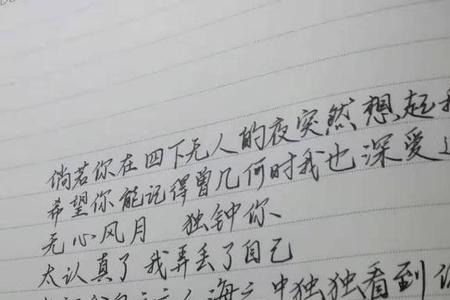 倘若你在四下无人的夜突然想起我
希望你能记得曾几何时我也深爱过
无心风月 独钟你
太认真了 我弄丢了自己
海之中独独看到